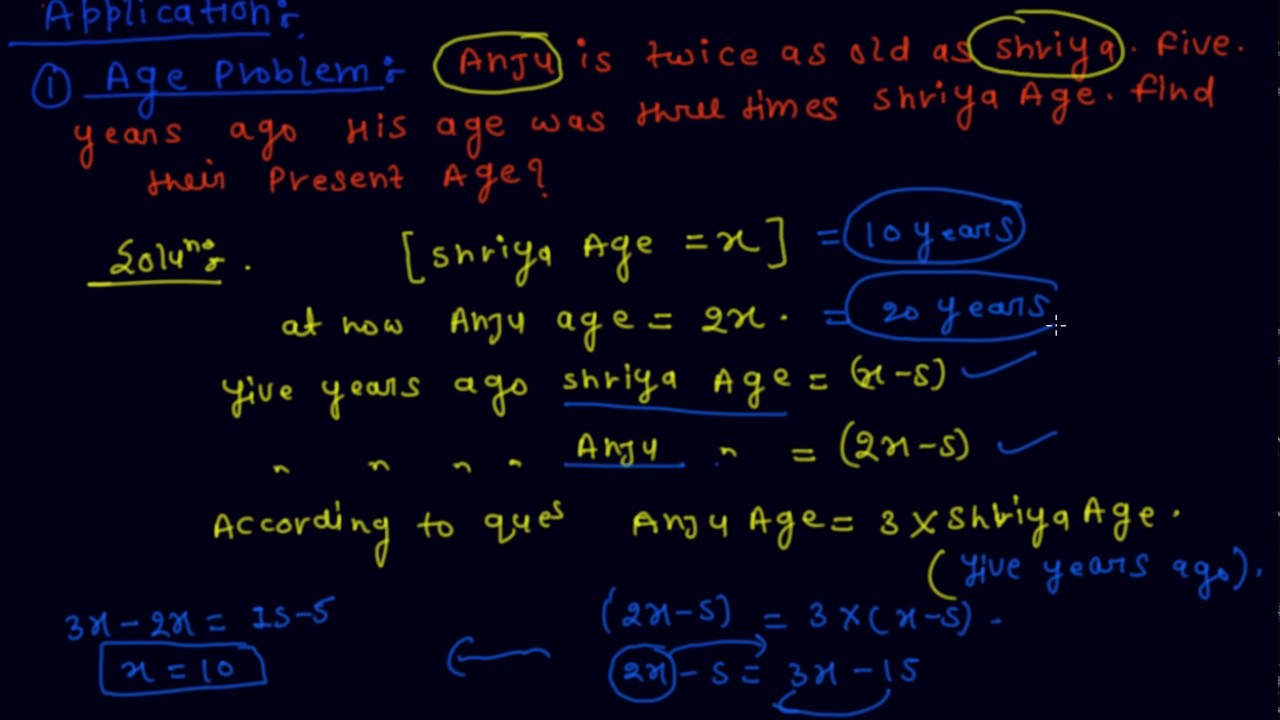 Application:
① Age Problem: Anju is twice as old as shriya. Five.
years ago His age was three times shriya Age. Find
their Present Age?
Soluns. [shriya Age = x] = 10 years
at now Anju age = 2x. = 20 years
five years ago shriya Age = (x-5)
" " " " Anju " = (2x-5)
According to ques Anju Age = 3 x Shriya Age.
(five years ago).
3x - 2x = 15-5 (2x-5) = 3 x (x-5).
x = 10 2x - 5 = 3x - 15